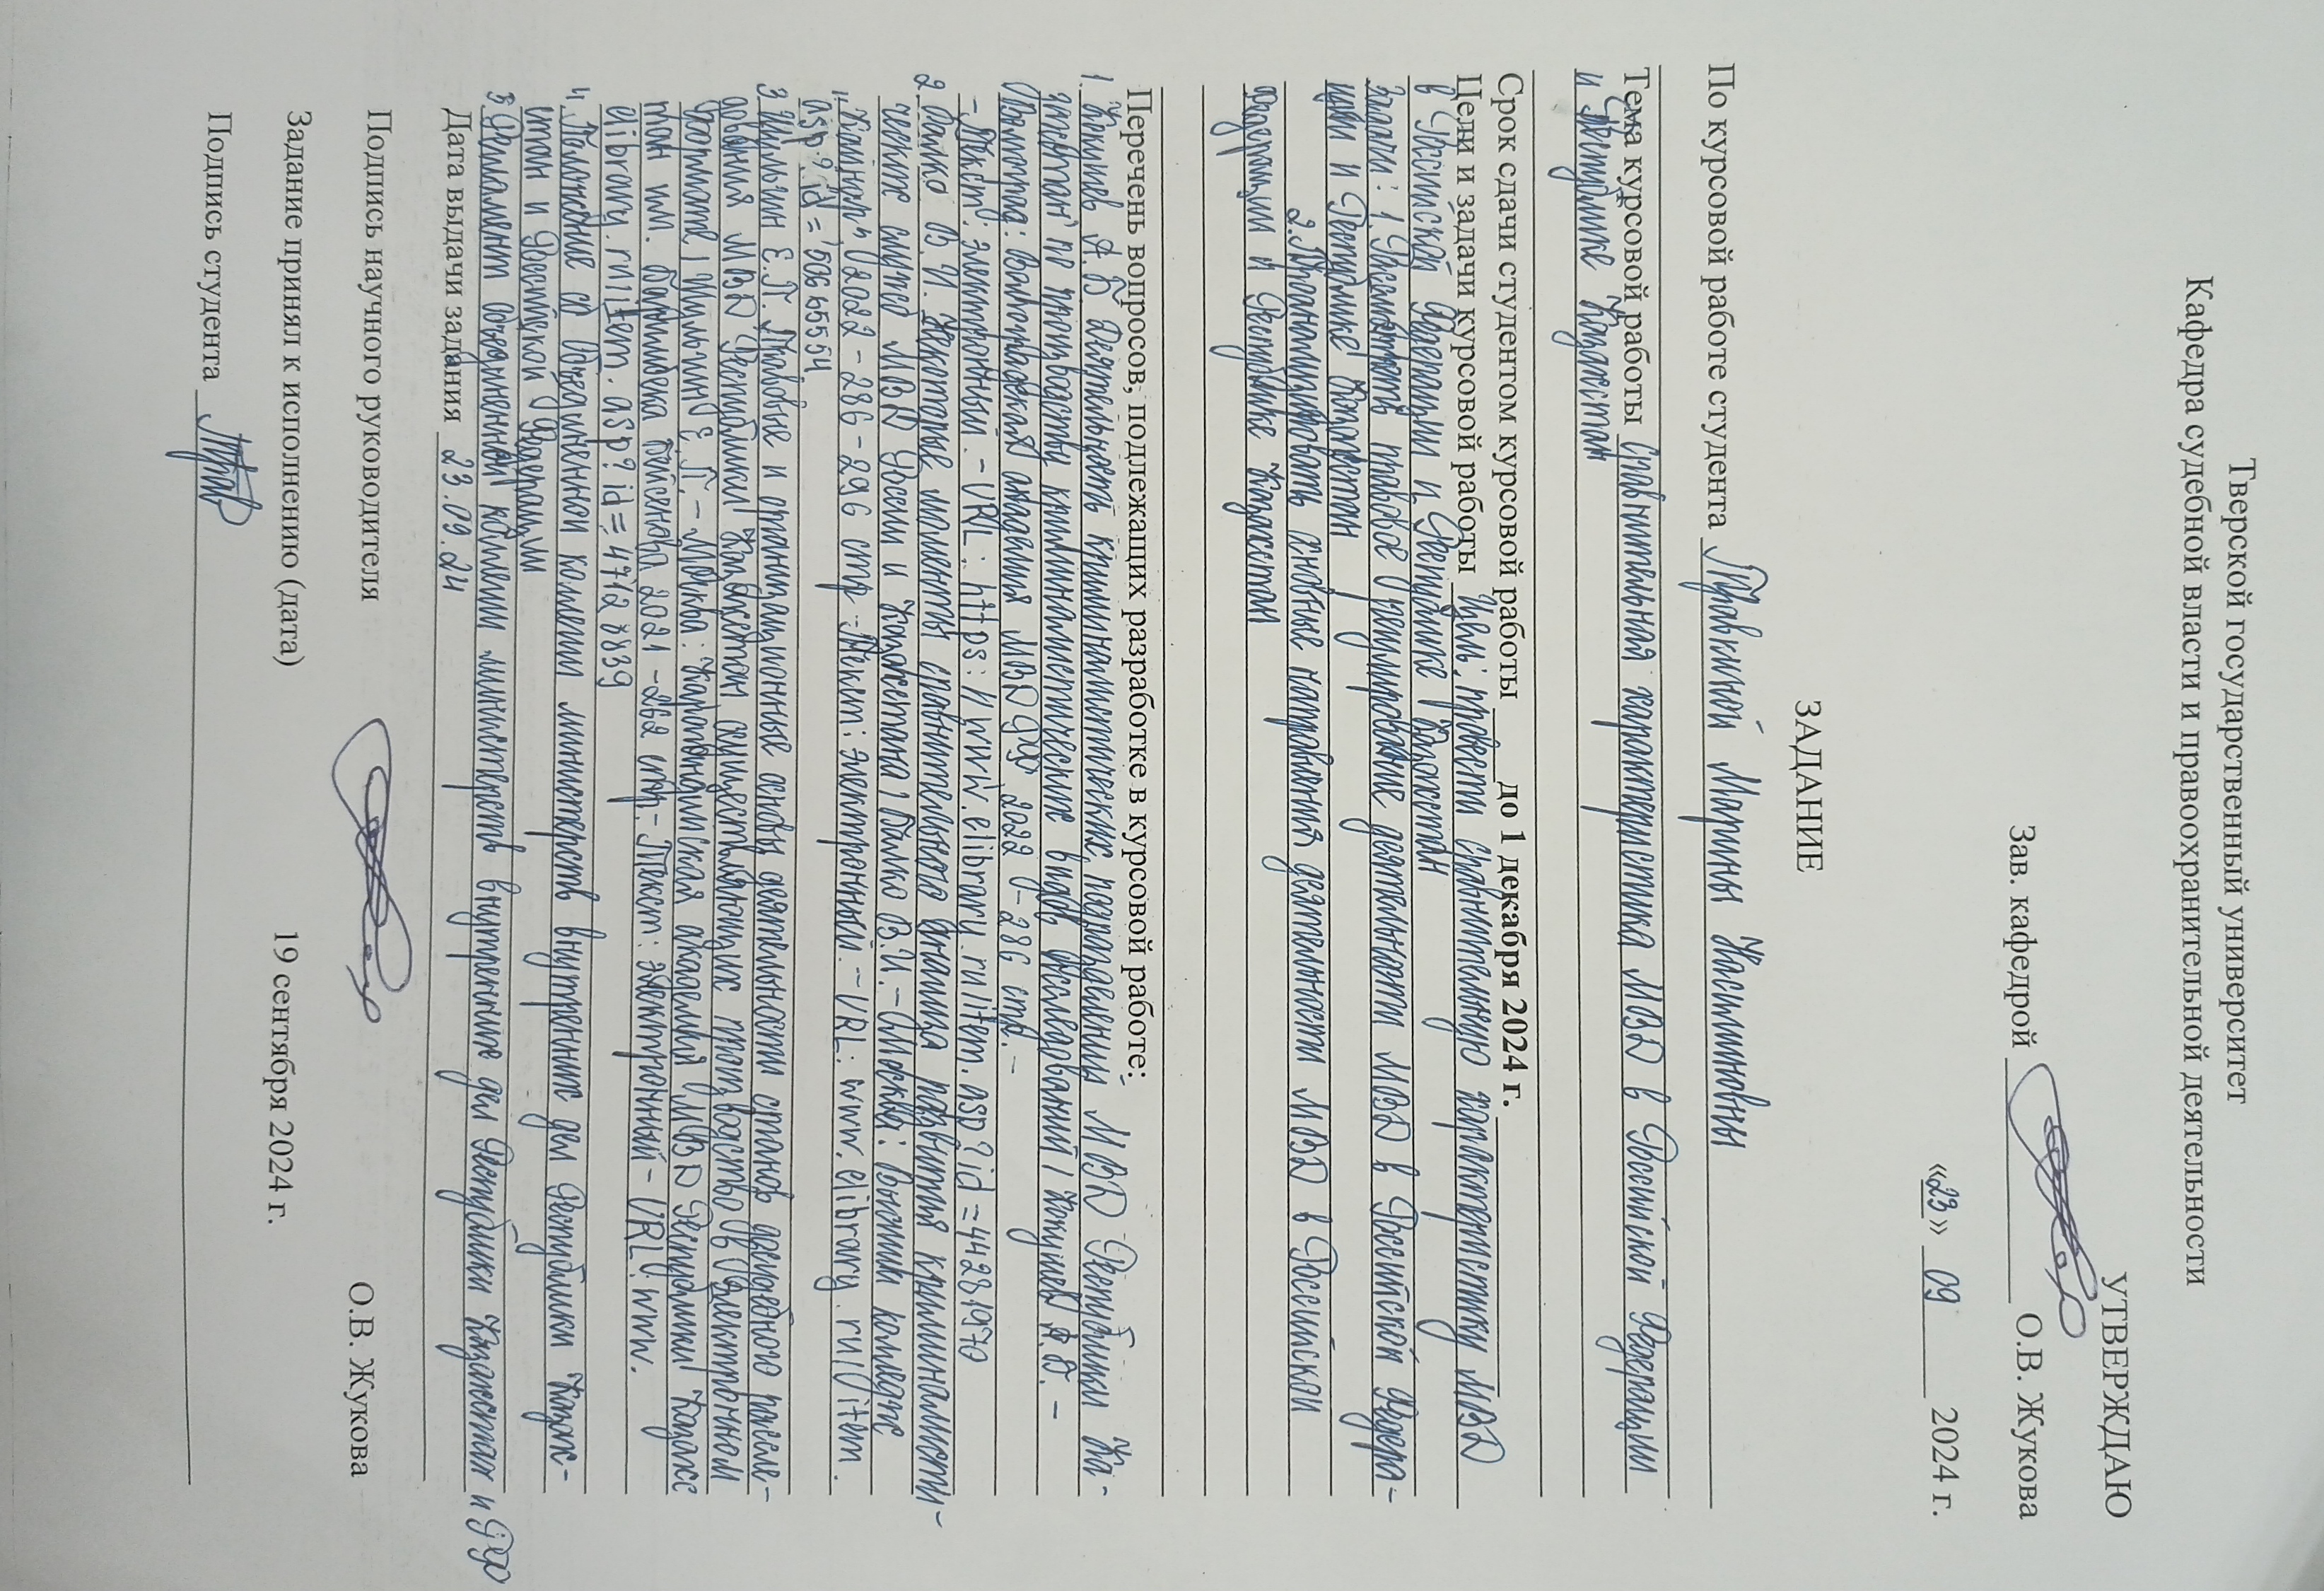 Тверской государственный университет
Кафедра судебной власти и правоохранительной деятельности
УТВЕРЖДАЮ
Зав. кафедрой О.В. Жукова
«23» 09 2024 г.
ЗАДАНИЕ
По курсовой работе студента Правкиной Марины
Тема курсовой работы Сравнительная характеристика МВД в Российской Федерации
и Республике Казахстан
Срок сдачи студентом курсовой работы до 1 декабря 2024 г.
Цели и задачи курсовой работы Цель: провести сравнительную характеристику МВД
в Российской Федерации и Республике Казахстан
Задачи: 1. Рассмотреть правовое регулирование деятельности МВД в Российской Федера-
ции и Республике Казахстан
2. Проанализировать основные направления деятельности МВД в Российской
Федерации и Республике Казахстан
Перечень вопросов, подлежащих разработке в курсовой работе:
1. А. Б. Деятельность криминалистических подразделений МВД Республики Ка-
захстан по производству криминалистических видов исследований / А.Б. -
Волгоград: Волгоградская академия МВД РФ, 2022 - 286 стр. -
- Текст: электронный. - URL: https://www.elibrary.ru/item.asp?id=44281970
2. В. И. Некоторые моменты сравнительного анализа развития криминалисти-
ческих служб МВД России и Казахстана / В.И. - Москва: Вестник
2022 - 286-296 стр - Текст: электронный. - URL: www.elibrary.ru/item.
asp?id=50665554
3 Е.П. Правовые и организационные основы деятельности органов досудебного рассле-
дования МВД Республики Казахстан, осуществляющих производство в электронном
формате / Е.П. - Москва: Карагандинская академия МВД Республики Казахс
тан им. Баримбека Бейсенова 2021 - 262 стр. - Текст: электронный - URL: www.
elibrary.ru/item.asp?id=47428839
4. Положение об Объединенной коллегии министерств внутренних дел Республики Казахс-
стан и Российской Федерации
5 Регламент объединенной коллегии министерств внутренних дел Республики Казахстан и РФ
Дата выдачи задания 23.09.24
Подпись научного руководителя О.В. Жукова
Задание принял к исполнению (дата) 19 сентября 2024 г.
Подпись студента